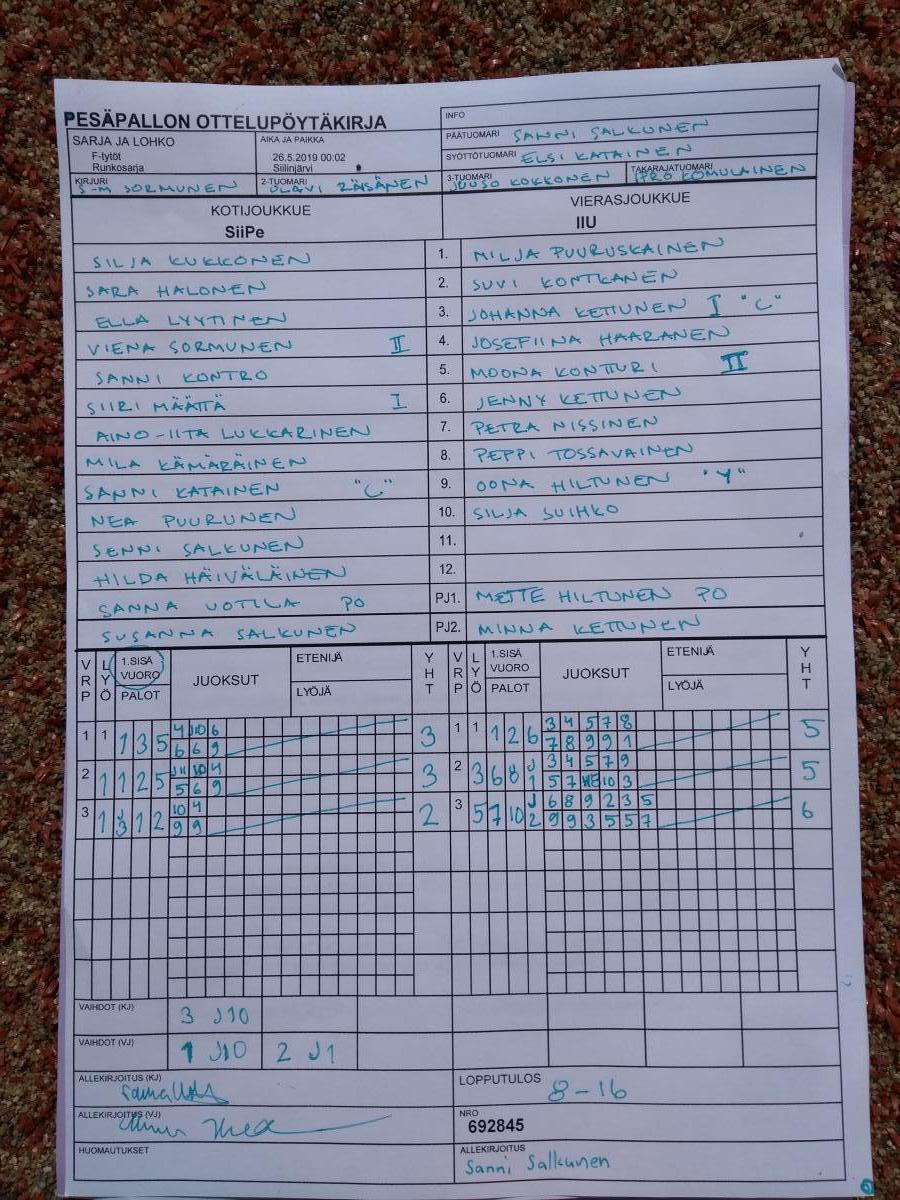 PESÄPALLON OTTELUPÖYTÄKIRJA
INFO
SARJA JA LOHKO
F-tytöt
Runkosarja
AIKA JA PAIKKA
26.5.2019 00:02
Siilinjärvi
PÄÄTUOMARI SANNI SALKUNEN
SYÖTTÖTUOMARI ELSI KATAINEN
KIRJURI S-M SORMUNEN
2-TUOMARI OLAVI RÄISÄNEN
3-TUOMARI JUUSO KOKKONEN
TAKARAJATUOMARI KOMULAINEN
KOTIJOUKKUE
SiiPe
VIERASJOUKKUE
IIU
SILJA KUKKONEN 1. MILJA PUURUSKAINEN
SARA HALONEN 2. SUVI KONTKANEN
ELLA LYYTINEN 3. JOHANNA KETTUNEN I "C"
VIENA SORMUNEN II 4. JOSEFIINA HAARANEN
SANNI KONTRO 5. MOONA KONTTURI II
SIIRI MÄÄTTÄ I 6. JENNY KETTUNEN
AINO-IITA LUKKARINEN 7. PETRA NISSINEN
MILA KÄMÄRÄINEN 8. PEPPI TOSSAVAINEN
SANNI KATAINEN "C" 9. OONA HILTUNEN "Y"
NEA PUURUNEN 10. SILJA SUIHKO
SENNI SALKUNEN 11.
HILDA HÄIVÄLÄINEN 12.
SANNA VOTILA PO PJ1. METTE HILTUNEN PO
SUSANNA SALKUNEN PJ2. MINNA KETTUNEN
VRP LYÖ 1.SISÄ VUORO PALOT JUOKSUT ETENIJÄ LYÖJÄ YHT VRP LYÖ 1.SISÄ VUORO PALOT JUOKSUT ETENIJÄ LYÖJÄ YHT
4 J10 6 3 4 5 7 8
1 1 1 3 5 6 6 9 3 1 1 1 2 6 7 8 9 9 1 5
J11 10 4 J 3 4 5 7 9
2 1 1 2 5 5 6 9 3 2 3 6 8 1 5 7 10 3 5
10 4 J 6 8 9 2 3 5
3 1 J3 1 2 9 9 2 3 5 7 10 2 9 9 3 5 5 7 6
VAIHDOT (KJ) 3 J10
VAIHDOT (VJ) 1 J10 2 J1
ALLEKIRJOITUS (KJ)
LOPPUTULOS 8-16
ALLEKIRJOITUS (VJ)
NRO
692845
HUOMAUTUKSET
ALLEKIRJOITUS
Sanni Salkunen